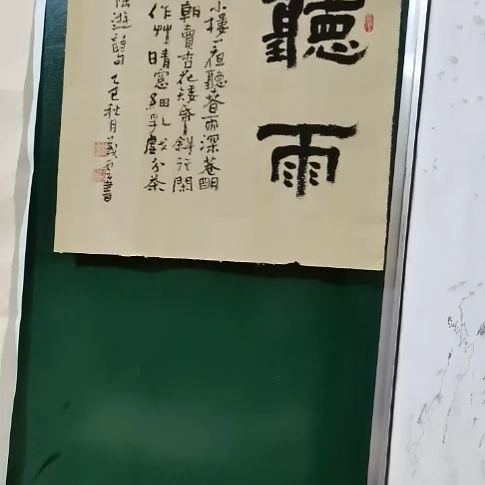 聽雨
小樓一夜聽春雨深巷明
朝賣杏花矮紙斜行閑
作艸晴窗細乳戲分茶
陸游詩句乙巳秋月